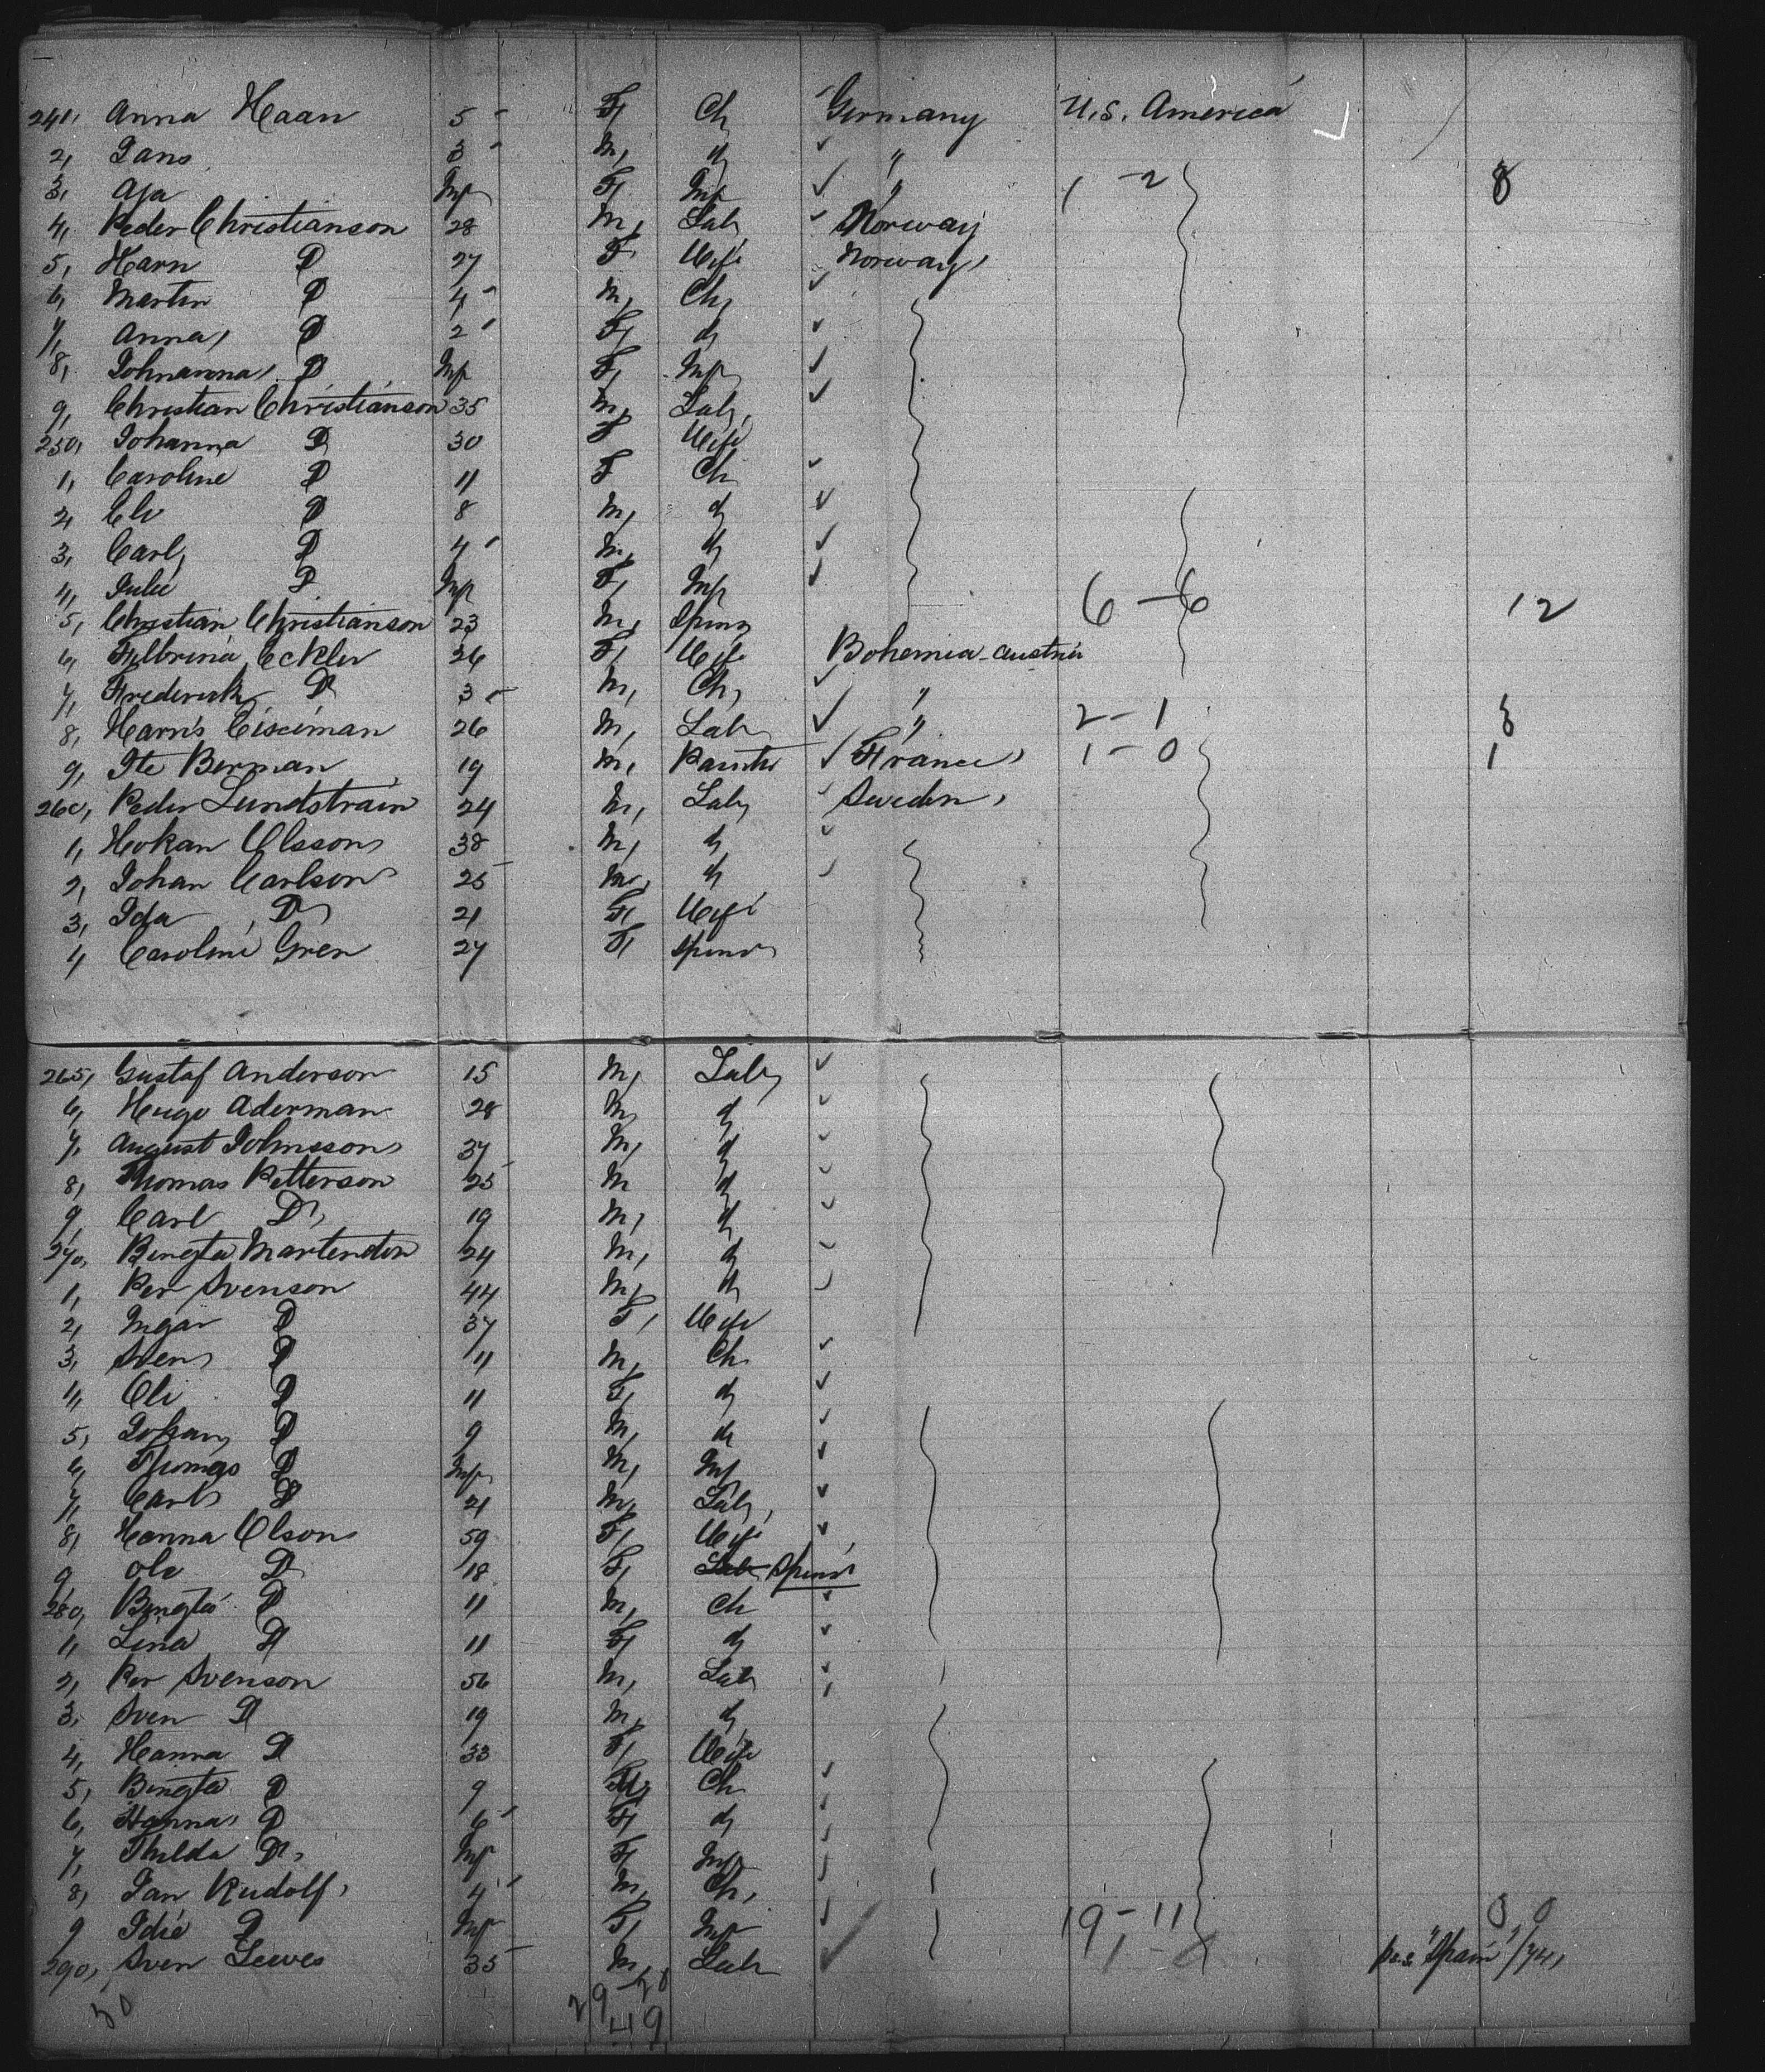 241, Anna Haan 5 F, Ch Germany U.S. America
2, Jans 3 M, d "
3, Aja Inf F, Inf " 1 - 2 8
4, Peder Christianson 28 M, Lab, Norway
5, Harn D 27 F Wife Norway,
6, Martin D 4 M, Ch,
7, Anna, D 2 F, d
8, Johnanna, D Inf F, Inf
9, Christian Christianson 35 M, Lab,
250, Johanna D 30 F Wife
1, Caroline D 11 F Ch
2, D 8 M, d
3, Carl, D 4 M, d
4, Julie D Inf F, Inf 6 - 6 12
5, Christian Christianson 23 M, Spinr
6, Eckler 26 F, Wife Bohemia-Austria
7, Frederick D 3 M, Ch,
8, Harris 26 M, Lab " 2 - 1
9, Ite Berman 19 M, Painter France, 1 - 0 1
260, Peder Lundstrain 24 M, Lab, Sweden,
1, Hokan Olsson 38 M, d
2, Johan Carlson 25 M, d
3, Ida D 21 F, Wife
4, Caroline Gren 27 F, Spinr
265, Gustaf Anderson 15 M, Lab,
6, Hugo Aderman 28 M, d
7, August Johnsson 37 M, d
8, Thomas Petterson 25 M d
9, Carl D, 19 M, d
270, Bengta 24 M, d
1, Per Svenson 44 M, d
2, Ingar D 37 F, Wife
3, Sven D 11 M, Ch
4, Oli D 11 F, d
5, Johan, D 9 M, d
6, Thomas D Inf M, Inf
7, Carl D 21 M, Lab,
8, Hanna Olson 59 F, Wife
9, Ola D 18 F, Lab Spinr
280, Bingta D 11 M, Ch
1, Lina D 11 F, d
2, Per Svenson 56 M, Lab
3, Sven D 19 M, d
4, Hanna D 33 F, Wife
5, Bingta D 9 M, Ch
6, Hanna, D 6 F, d
7, Thilda D, Inf F, Inf
8, Jan Rudolf, 4 M, Ch,
9 Idie D Inf F, Inf 19 - 11
290, Sven Lewes 35 M, Lab 1 "Spain"
30 29 - 20
49